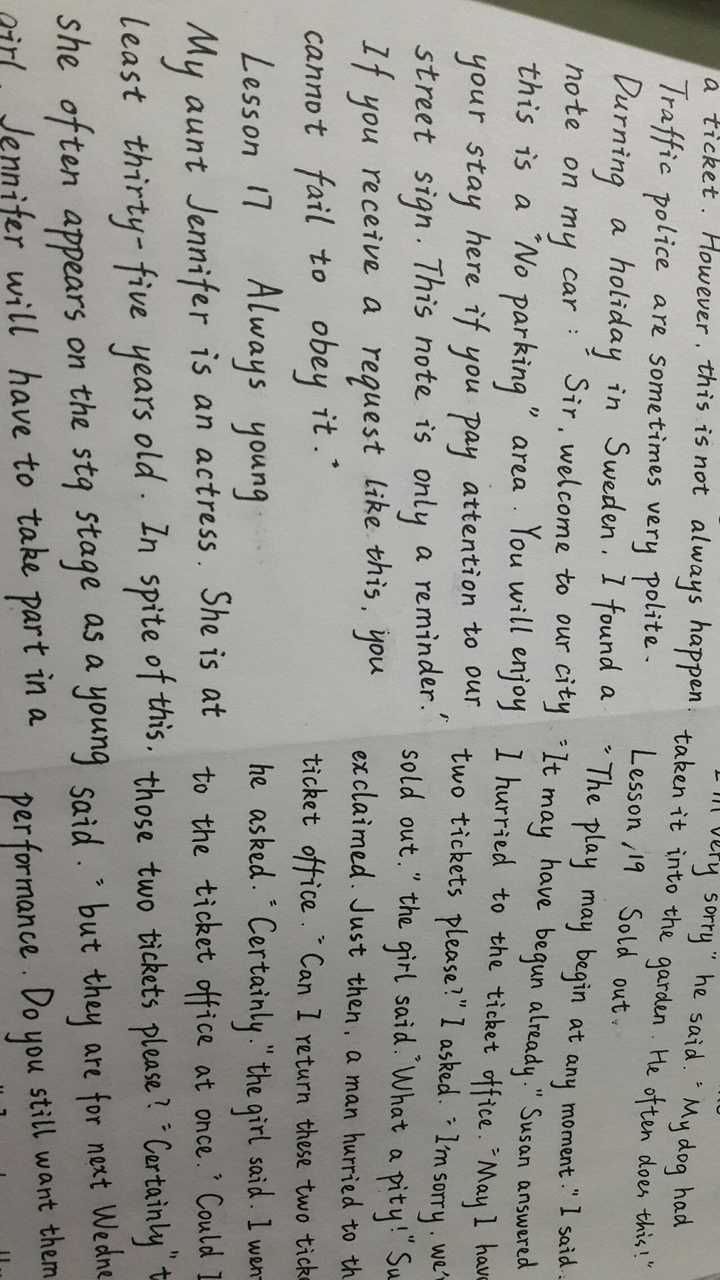 a ticket. However, this is not always happen.
Traffic police are sometimes very polite.
Durning a holiday in Sweden, I found a
note on my car: "Sir, welcome to our city
this is a "No parking" area. You will enjoy
your stay here if you pay attention to our
street sign. This note is only a reminder."
If you receive a request like this, you
cannot fail to obey it."
Lesson 17 Always young
My aunt Jennifer is an actress. She is at
least thirty-five years old. In spite of this,
she often appears on the stg stage as a young
girl. Jennifer will have to take part in a
very sorry" he said. "My dog had
taken it into the garden. He often does this!"
Lesson 19 Sold out
"The play may begin at any moment." I said.
"It may have begun already." Susan answered
I hurried to the ticket office. "May I have
two tickets please?" I asked. "I'm sorry, we'
sold out." the girl said. "What a pity!" Su
exclaimed. Just then, a man hurried to th
ticket office. "Can I return these two tick
he asked. "Certainly." the girl said. I wen
to the ticket office at once. "Could I
those two tickets please? "Certainly" t
said. "but they are for next Wedne
performance. Do you still want them